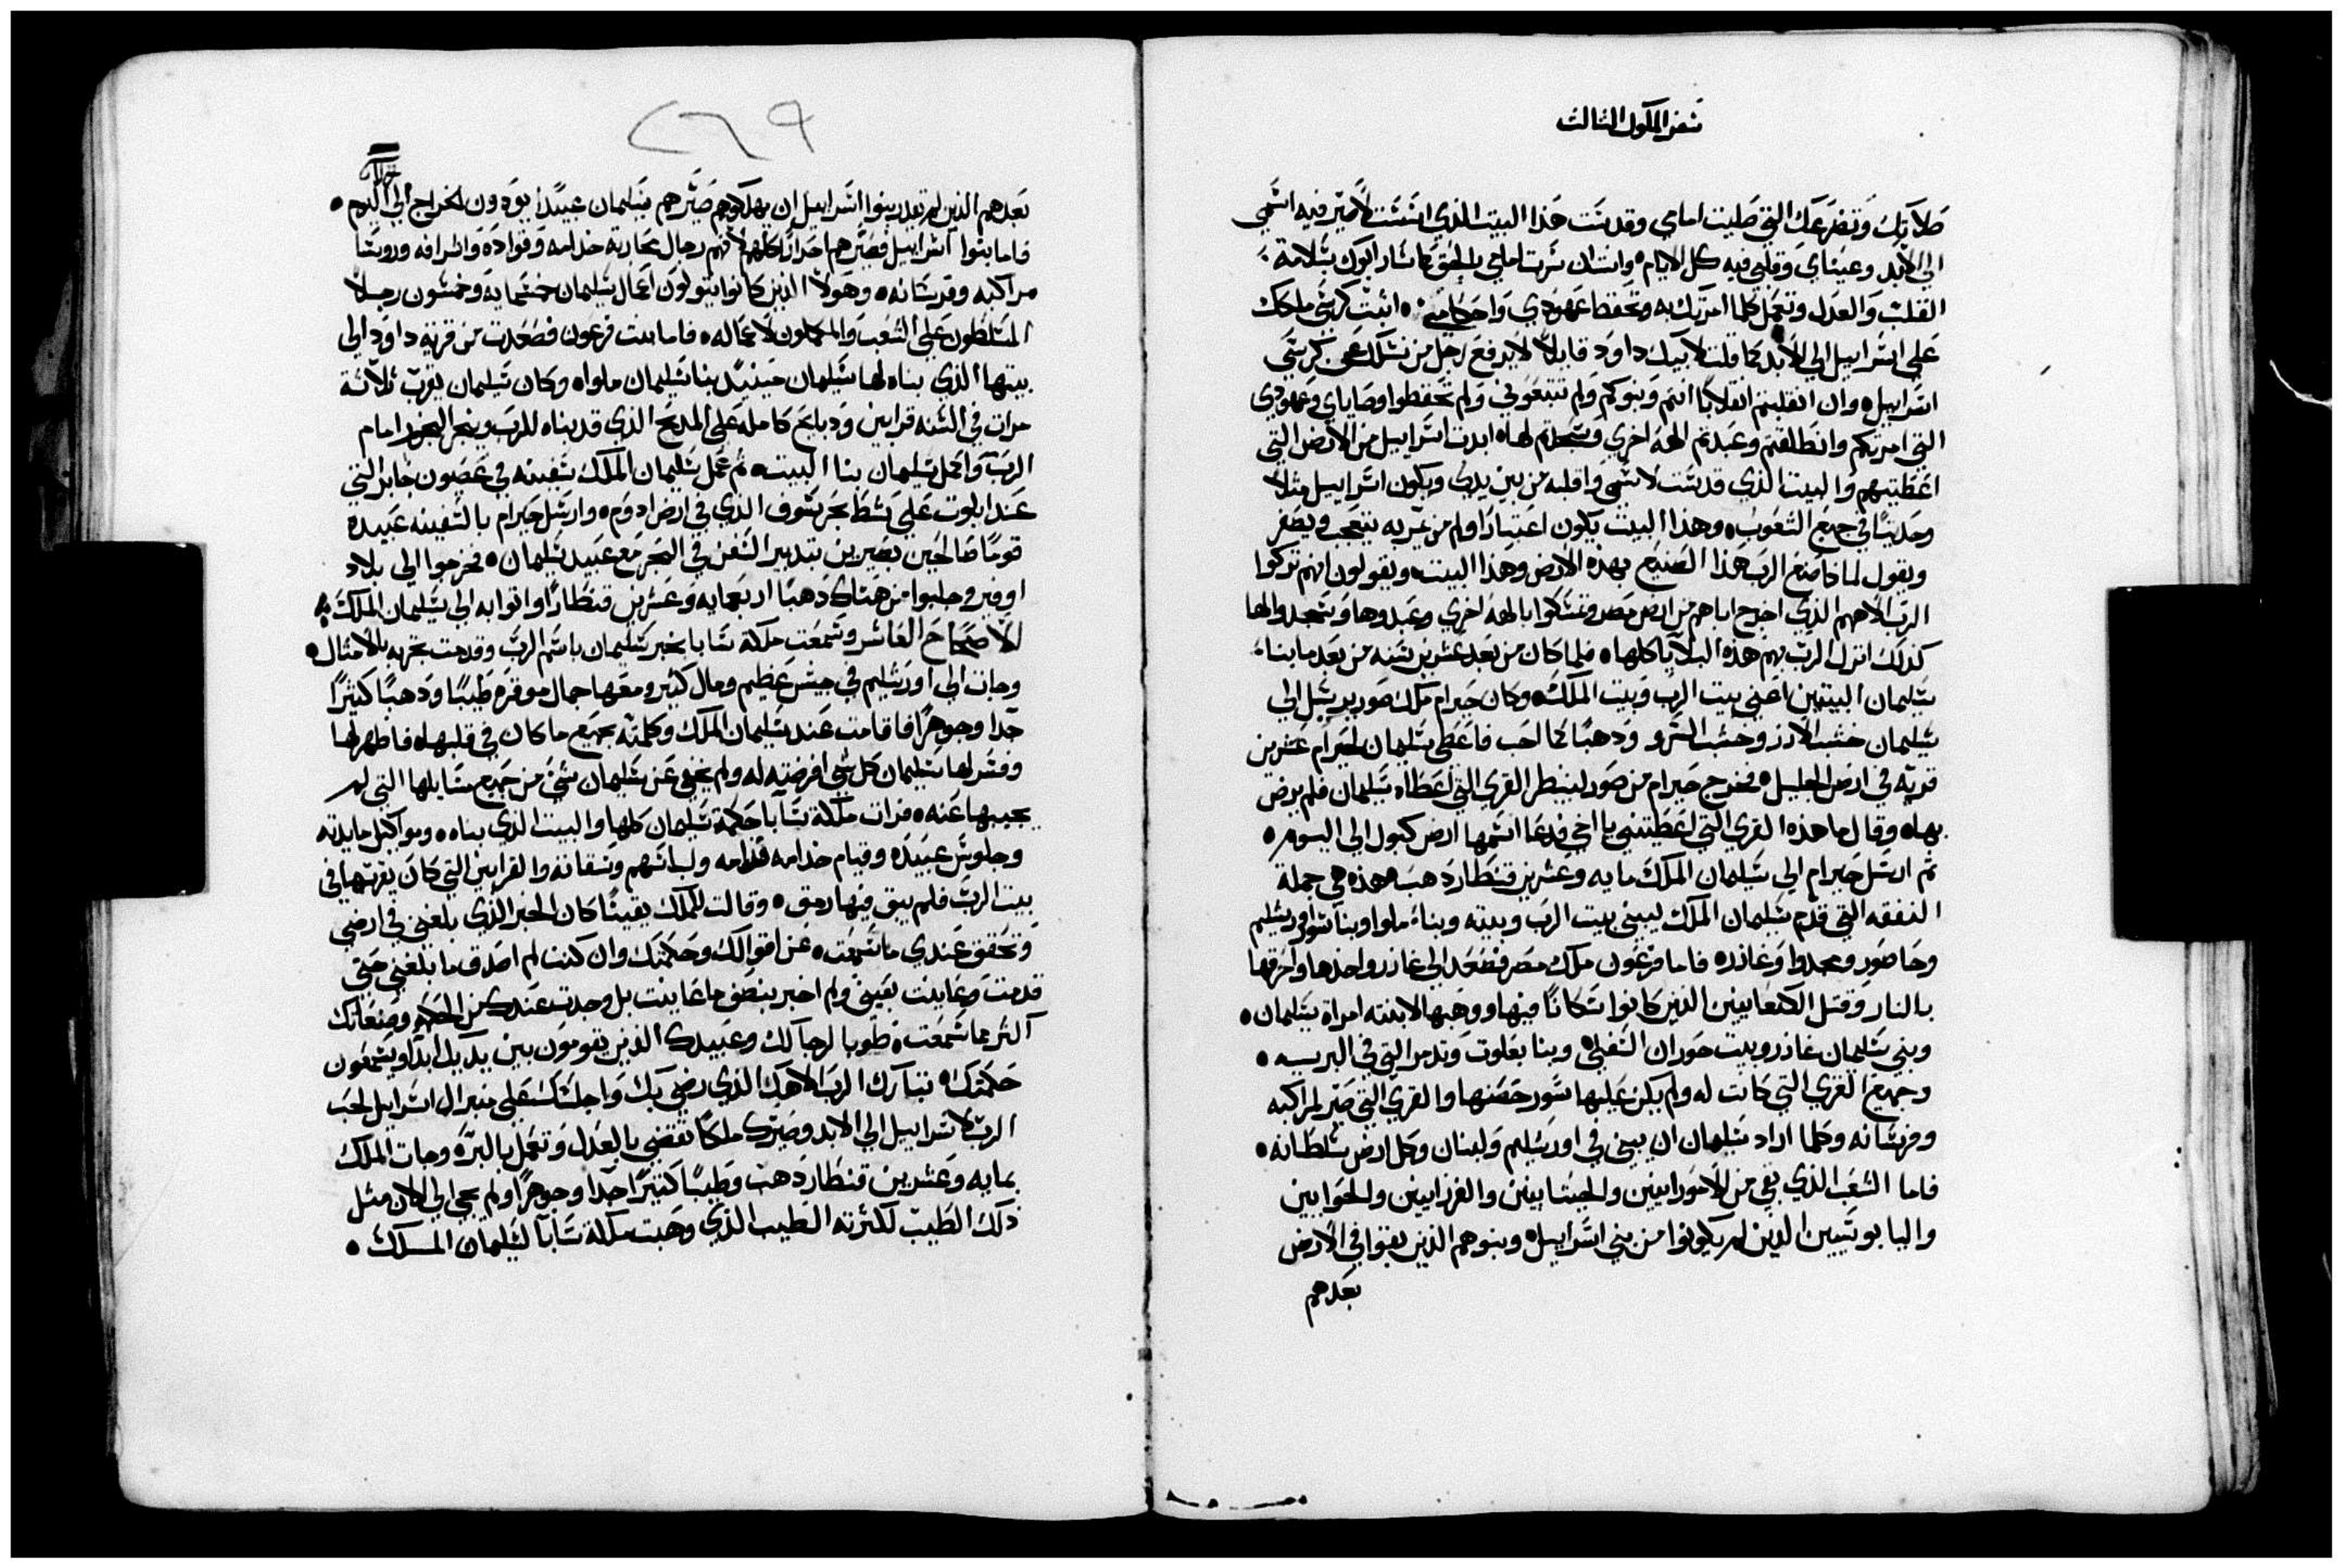 سفر الملوك الثالث
صلاتك وتضرعك التي صليت امامي وقدست هذا البيت الذي انشئت لاصير فيه اسمي
الي الابد وعيناي وقلبي فيه كل الايام وانت ان سرت امامي بالحق كما سار ابوك بسلامة
القلب والعدل وتعمل كلما امرتك به وتحفظ عهودي واحكامي اثبت كرسي ملكك
علي اسراييل الي الابد كما قلت لابيك داود قايلا لا يرفع رجل من نسلك عن كرسي
اسراييل وان انقلبتم انقلابا انتم وبنوكم ولم تتبعوني ولم تحفظوا وصاياي وعهودي
التي امرتكم وانطلقتم وعبدتم الهة اخري وسجدتم لها ابدت اسراييل من الارض التي
اعطيتهم والبيت الذي قدست لاسمي واقلبه من بين يدي ويكون اسراييل مثلا
وحديثا في جميع الشعوب وهذا البيت يكون اعتبارا ولمن يمر به يتعجب ويصفر
ويقول لماذا صنع الرب هذا الصنيع بهذه الارض وهذا البيت ويقولون انهم تركوا
الرب الاههم الذي اخرج اباهم من ارض مصر وتمسكوا بالهة اخري وعبدوها وسجدوا لها
كذلك انزل الرب بهم هذه البلايا كلها فلما كان من بعد عشرين سنه من بعد ما بناء
سليمان البيتين اعني بيت الرب وبيت الملك وكان حيرام ملك صور يرسل الي
سليمان خشب الارز وخشب السرو وذهبا كما احب فاعطي سليمان لحيرام عشرين
قريه في ارض الجليل فخرج حيرام من صور لينظر القري التي اعطاه سليمان فلم يرض
بها وقال ما هذه القري التي اعطيتني يا اخي فدعا اسمها ارض كبول الي اليوم
ثم ارسل حيرام الي سليمان الملك مايه وعشرين قنطار ذهب هذه هي جملة
النفقه التي قدم سليمان الملك ليبني بيت الرب وبيته وبناء ملوا وبنا سور اورشليم
وحاصور ومجدوا وغازر فاما فرعون ملك مصر فصعد الي غازر واخذها واحرقها
بالنار وقتل الكنعانيين الذين كانوا سكانا فيها ووهبها لابنته امراة سليمان
وبني سليمان غازر وبيت حوران السفلي وبنا بعلوت وتدمر التي في البريه
وجميع القري التي كانت له ولم يكن عليها سور حصنها والقري التي صير لمراكبه
وفرسانه وكلما اراد سليمان ان يبني في اورشليم ولبنان وكل ارض سلطانه
فاما الشعب الذي بقي من الامورانيين والحيثانيين والفرزانيين والحوانيين
واليابوسيين الذين لم يكونوا من بني اسراييل وبنوهم الذين بقوا في الارض
بعدهم
٢٦٩
بعدهم الذين لم يقدر بنوا اسراييل ان يهلكوهم صيرهم سليمان عبيدا يودون الخراج الي اليوم
فاما بنوا اسراييل فصيرهم احرارا كلهم لانهم رجال محاربة خدامه وقواده واشرافه وروسا
مراكبه وفرسانه وهولا الذين كانوا يتولون اعمال سليمان خمسمايه وخمسون رجلا
المسلطون علي الشعب والمكملون لاعماله فاما بنت فرعون فصعدت من قرية داود الي
بيتها الذي بناه لها سليمان حينيذ بنا سليمان ملواه وكان سليمان يقرب ثلاثة
مرات في السنه قرابين وذبايح كامله علي المذبح الذي قد بناه للرب ويبخر البخور امام
الرب واكمل سليمان بنا البيت ثم عمل سليمان الملك سفينه في عصيون جابر التي
عند ايلوت علي شط بحر سوف الذي في ارض ادوم وارسل حيرام بالسفينه عبيده
قوما صالحين بصيرين بتدبير السفن في البحر مع عبيد سليمان فخرجوا الي بلاد
اوفير وجلبوا من هناك ذهبا اربعمايه وعشرين قنطارا واتوا به الي سليمان الملك
الاصحاح العاشر وسمعت ملكة سابا بخبر سليمان باسم الرب وقدمت تجربه بالامثال
وجات الي اورشليم في جيش عظيم ومال كثير ومعها جمال موقره طيبا وذهبا كثيرا
جدا وجوهرا فاقامت عند سليمان الملك وكلمته بجميع ما كان في قلبها فاظهر لها
وفسر لها سليمان كل شي افرضته له ولم يخفي عن سليمان شي من جميع مسايلها التي لم
يجيبها عنه فرات ملكة سابا حكمة سليمان كلها والبيت الذي بناه ومواكيل مايدته
وجلوس عبيده وقيام خدامه قدامه ولباسهم وسقاته والقرابين التي كان يقربها في
بيت الرب فلم يبق فيها رمق وقالت للملك يقينا كان الخبر الذي بلغني في ارضي
وتحقق عندي ما سمعت عن اقوالك وحكمتك وان كنت لم اصدق ما بلغني حتي
قدمت وعاينت بعيني ولم اخبر بنصف ما عاينت بل وجدت عندك من الحكم وصنعاتك
اكثر مما سمعت طوبا لرجالك وعبيدك الذين يقومون بين يديك ابدا ويسمعون
حكمتك تبارك الرب الاهك الذي رضي بك واجلسك علي منبر ال اسراييل لحب
الرب لاسراييل الي الابد وصيرك ملكا تقضي بالعدل وتعمل بالبر وجات الملك
بمايه وعشرين قنطار ذهب وطيبا كثيرا جدا وجوهرا ولم يجي الي الان مثل
ذلك الطيب لكثرته الطيب الذي وهبت ملكة سابا لسليمان الملك